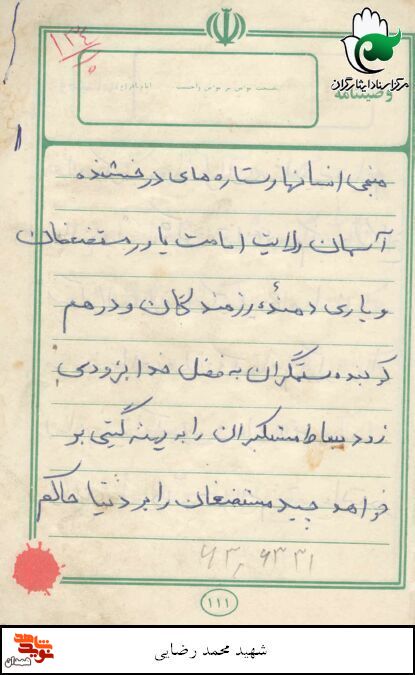 ۱۳۴/۵
مرکز اسناد ایثارگران
وصیتنامه
منجی انسانها و ستاره های درخشنده
آسمان ولایت امامت یاور مستضعفان
و یاری دهندۀ رزمندگان و درهم
کوبنده ستمگران به فضل خدا بزودی
زود بساط مستکبران را به پهنه گیتی بر
خواهد چید مستضعفان را بر دنیا حاکم
۶۳٫۶۳۳۱
۱۱۱
شاهد
نوید
همدان
شهید محمد رضایی